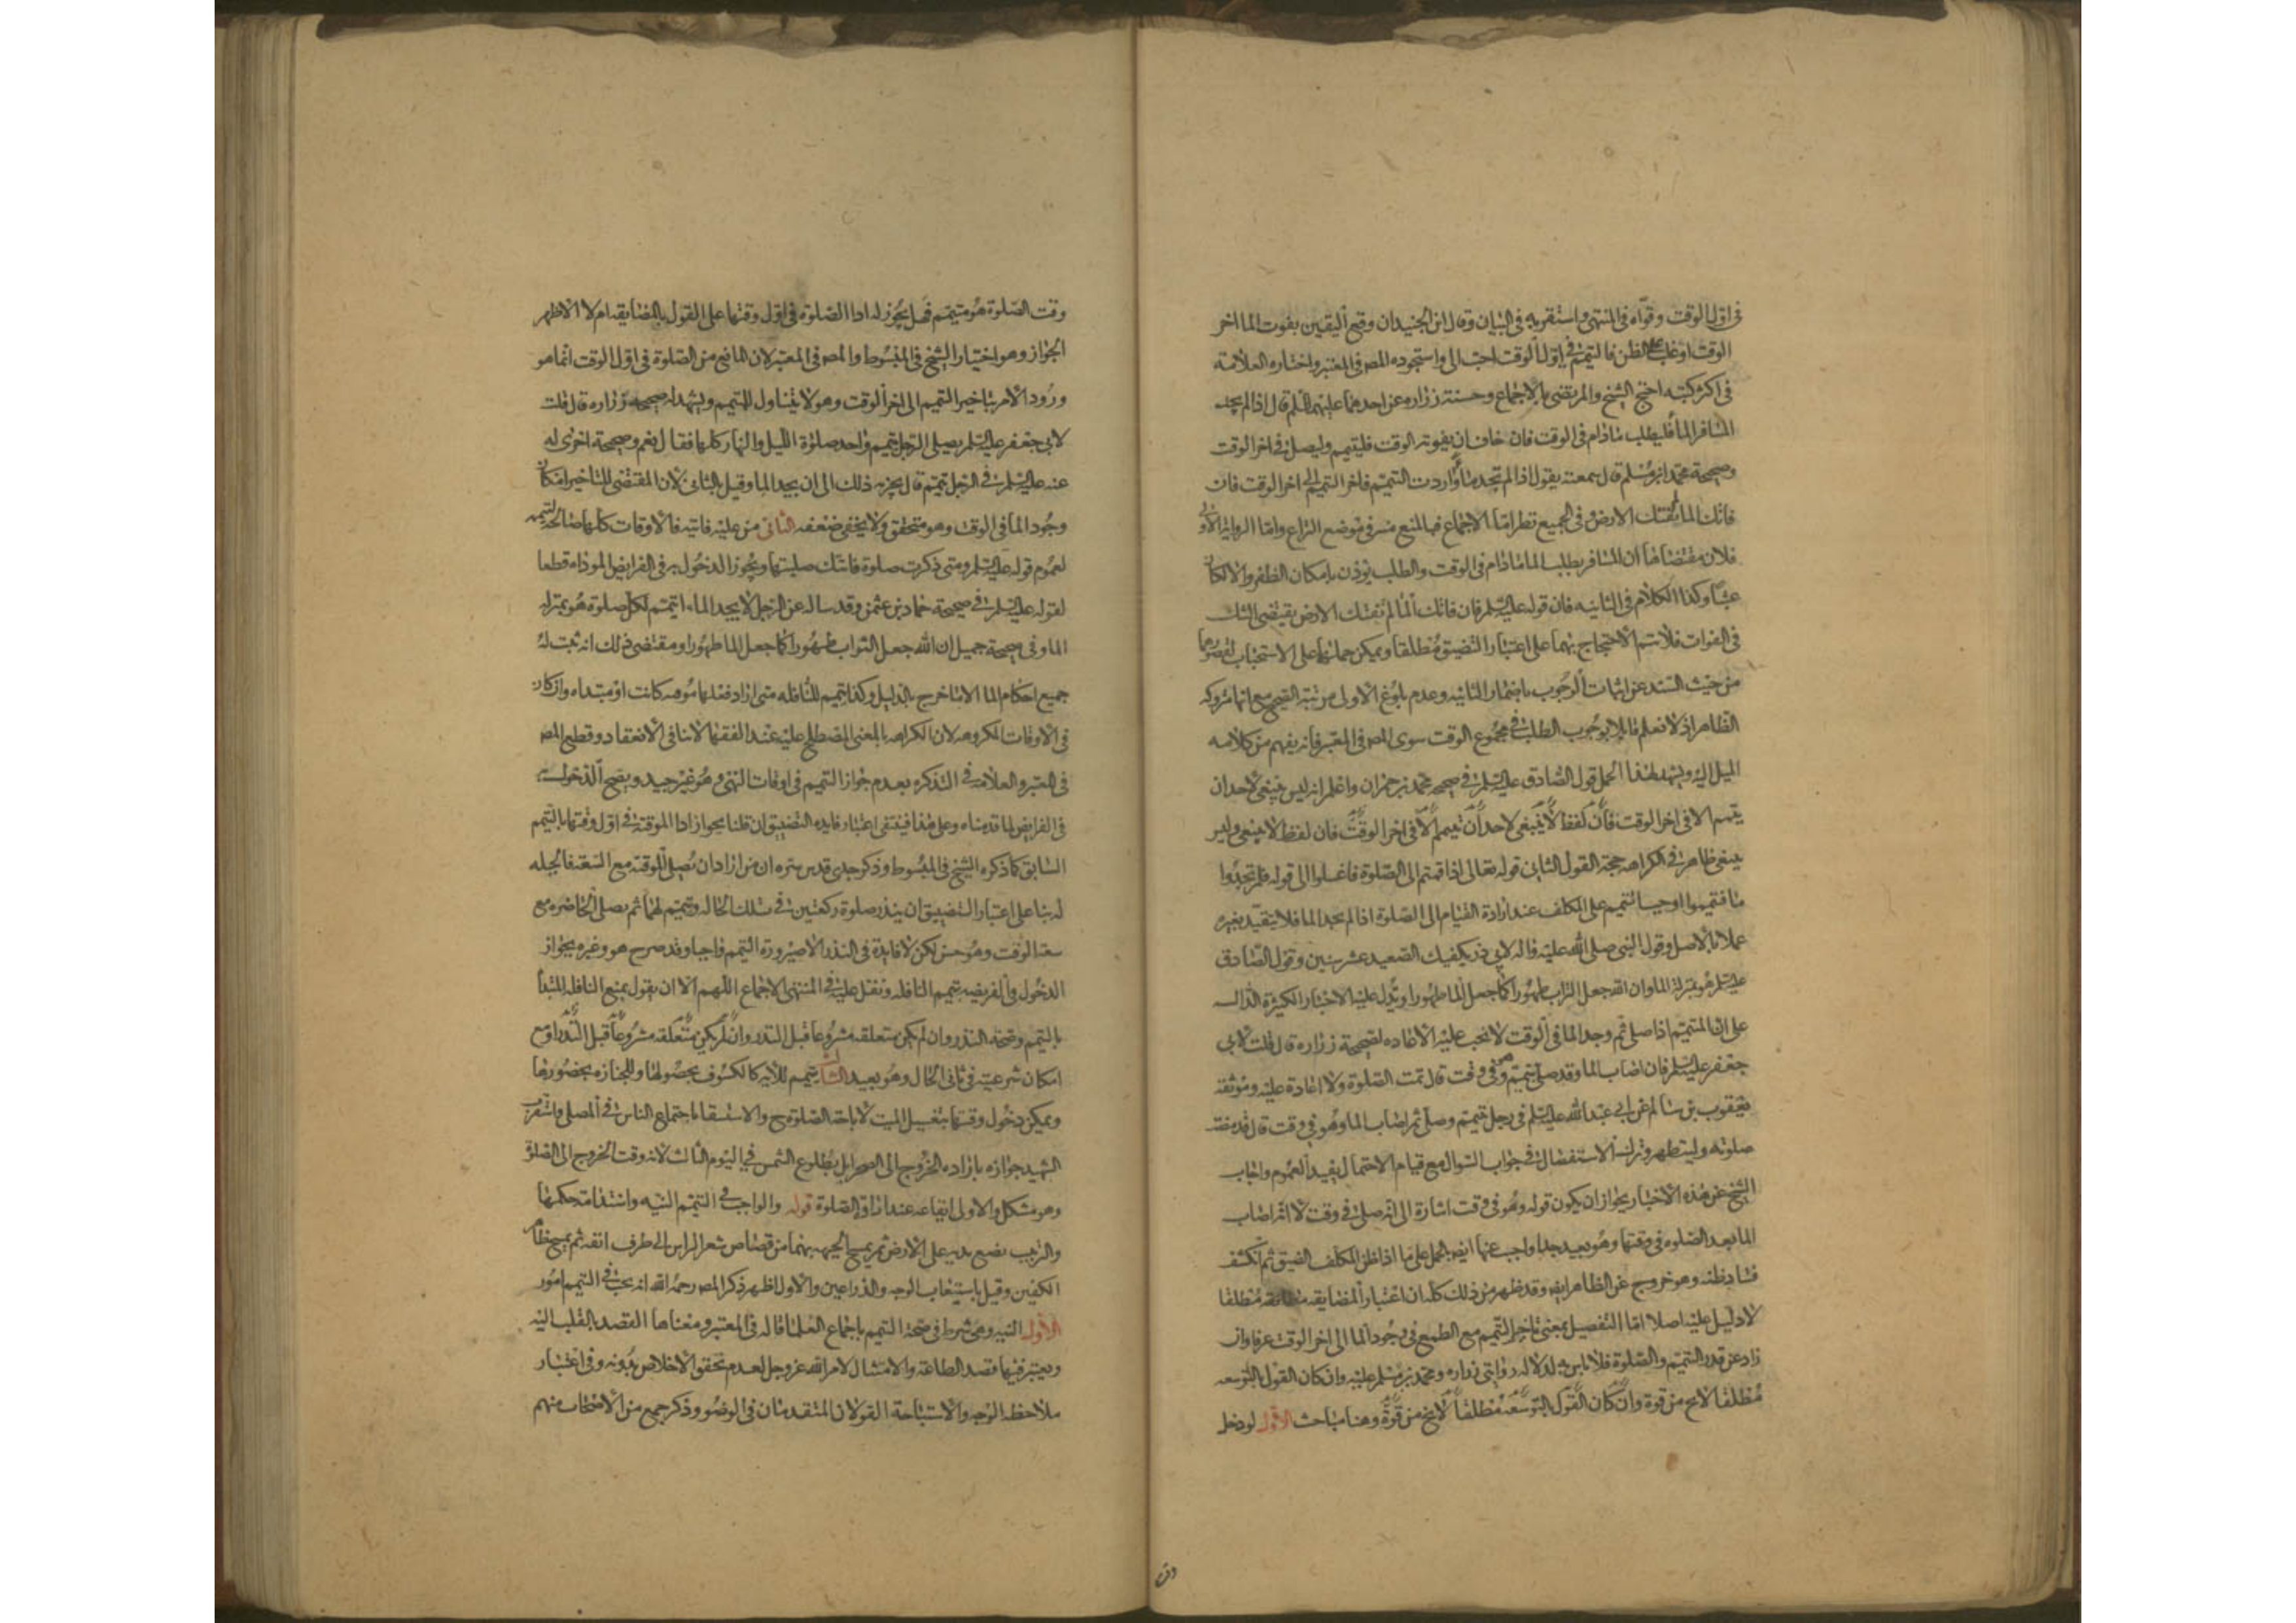 في اول الوقت وقواه في المنتهى واستقر به في البيان وقال ابن الجنيد ان وقع اليقين بفوت الما اخر
الوقت او غلب الظن فالتيمم في اول الوقت احب الي واستجوده المص في المعتبر واختاره العلامة
في اكثر كتبه احتج الشيخ والمرتضى بالاجماع وحسنة زراره عن احدهما عليهما السلم قال اذا لم يجد
المسافر الما فليطلب مادام في الوقت فان خاف ان يفوته الوقت فليتيمم وليصل في اخر الوقت
وصحيحة محمد بن مسلم قال سمعته يقول اذا لم تجد ما واردت التيمم فاخر التيمم الى اخر الوقت فان
فاتك الما لم تفتك الارض وفي الجميع نظر اما الاجماع فبالمنع منه في موضع النزاع واما الرواية الاولى
فلان مقتضاها ان المسافر يطلب الما مادام في الوقت والطلب يوذن بامكان الظفر والا لكان
عبثا وكذا الكلام في الثانيه فان قوله عليه السلم فان فاتك الما لم تفتك الارض يقتضي الشك
في الفوات فلا يتم الاحتجاج بهما على اعتبار التضيق مطلقا ويمكن حملهما على الاستحباب لقصورهما
من حيث السند عن اثبات الوجوب باضمار الثانيه وعدم بلوغ الاولى مرتبة الصحيح مع انها متروكه
الظاهر اذ لا نعلم قائلا بوجوب الطلب في مجموع الوقت سوى المص في المعتبر فانه يفهم من كلامه
الميل اليه ويشهد لهذا الحمل قول الصادق عليه السلم في صحيحه محمد بن حمران واعلم انه ليس ينبغي لاحد ان
يتيمم الا في اخر الوقت فان لفظ لا ينبغي لاحد ان يتيمم الا في اخر الوقت فان لفظ لا ينبغي وليس
ينبغي ظاهر في الكراهه حجة القول الثاني قوله تعالى اذا قمتم الى الصلوة فاغسلوا الى قوله فلم تجدوا
ما فتيمموا اوجب التيمم على المكلف عند ارادة القيام الى الصلوة اذا لم يجد الما فلا يتقيد بغيره
عملا بالاصل وقول النبي صلى الله عليه واله لابي ذر يكفيك الصعيد عشر سنين وقول الصادق
عليه السلم هو بمنزلة الما وان الله جعل التراب طهورا كما جعل الما طهورا ويدل عليه الاخبار الكثيرة الدالة
على ان المتيمم اذا صلى ثم وجد الما في الوقت لا يجب عليه الاعاده لصحيحة زراره قال قلت لابي
جعفر عليه السلم فان اصاب الما وقد صلى بتيمم وهو في وقت قال تمت الصلوة ولا اعادة عليه وموثقة
يعقوب بن سالم عن ابي عبد الله عليه السلم في رجل تيمم وصلى ثم اصاب الما وهو في وقت قال قد مضت
صلوته وليتطهر وترك الاستفصال في جواب السوال مع قيام الاحتمال يفيد العموم واجاب
الشيخ عن هذه الاخبار بجواز ان يكون قوله وهو في وقت اشارة الى انه صلى في وقت لا انه اصاب
الما بعد الصلوه في وقتها وهو بعيد جدا واجيب عنها ايضا بالحمل على ما اذا ظن المكلف الضيق ثم انكشف
فساد ظنه وهو خروج عن الظاهر ايضا وقد ظهر من ذلك كله ان اعتبار المضايقه مطلقا
لا دليل عليه اصلا اما التفصيل بمعنى تاخير التيمم مع الطمع في وجود الما الى اخر الوقت عرفا وان
زاد عن قدر التيمم والصلوة فلا باس به لدلاله روايتي زراره ومحمد بن مسلم عليه وان كان القول بالتوسعه
مطلقا لا يخ من قوة وان كان القول بالتوسعة مطلقا لا يخ من قوة وهنا مباحث الاول لو دخل
وقت
وقت الصلوة هو متيمم فهل يجوز له ادا الصلوة في اول وقتها على القول بالمضايقه ام لا الاظهر
الجواز وهو اختيار الشيخ في المبسوط والمص في المعتبر لان المانع من الصلوة في اول الوقت انما هو
ورود الامر بتاخير التيمم الى اخر الوقت وهو لا يتناول المتيمم ويشهد له صحيحه زراره قال قلت
لابي جعفر عليه السلم يصلي الرجل بتيمم واحد صلوة الليل والنهار كلها فقال نعم وصحيحة اخرى له
عنه عليه السلم في الرجل تيمم قال يجزيه ذلك الى ان يجد الما وقيل بالثاني لان المقتضى للتاخير امكان
وجود الما في الوقت وهو متحقق ولا يخفى ضعفه الثاني من عليه فايته فالاوقات كلها صالحة لتيممه
لعموم قوله عليه السلم ومتى ذكرت صلوة فاتتك صليتها ويجوز الدخول به في الفرايض الموداه قطعا
لقوله عليه السلم في صحيحة حماد بن عثمن وقد ساله عن الرجل لا يجد الماء ايتيمم لكل صلوة هو بمنزلة
الما وفي صحيحة جميل ان الله جعل التراب طهورا كما جعل الما طهورا ومقتضى ذلك انه ثبت له
جميع احكام الما الا ما خرج بالدليل وكذا يتيمم للنافله متى اراد فعلها موقته كانت او مبتداه وان كان
في الاوقات المكروهه لان الكراهه بالمعنى المصطلح عليه عند الفقها لا تنافي الانعقاد وقطع المص
في المعتبر والعلامة في التذكره بعدم جواز التيمم في اوقات النهي وهو غير جيد ويصح الدخول به
في الفرايض لما قدمناه وعلى هذا فينتفي اعتبار فايده التضييق ان قلنا بجواز ادا الموقتة في اول وقتها بالتيمم
السابق كما ذكره الشيخ في المبسوط وذكر جدي قدس سره ان من اراد ان يصلي الموقته مع السعة فالحيله
له بنا على اعتبار التضييق ان ينذر صلوة ركعتين في تلك الحاله ويتيمم لهما ثم يصلي الحاضره مع
سعة الوقت وهو حسن لكن لا فايدة في النذر الا صيرورة التيمم واجبا وقد صرح هو وغيره بجواز
الدخول في الفريضه بتيمم النافله ونقل عليه في المنتهى الاجماع اللهم الا ان يقول بمنع النافله المبتدأ
بالتيمم وصحة النذر وان لم يكن متعلقه مشروعا قبل النذر وان لم يكن متعلقه مشروعا قبل النذر اذ مع
امكان شرعيته في ثاني الحال وهو بعيد الثالث يتيمم للاية كالكسوف بحصولها وللجنازه بحضورها
ويمكن دخول وقتها بتغسيل الميت لاباحة الصلوة ح والاستسقا باجتماع الناس في المصلى واستقرب
الشهيد جوازه بارادة الخروج الى الصحرا بل بطلوع الشمس في اليوم الثالث لانه وقت الخروج الى الصلوة
وهو مشكل والاولى ايقاعه عند ارادة الصلوة قوله والواجب في التيمم النيه واستدامة حكمها
والترتيب يضع يديه على الارض ثم يمسح الجبهه بهما من قصاص شعر الراس الى طرف انفه ثم يمسح ظاهر
الكفين وقيل باستيعاب الوجه والذراعين والاول اظهر ذكر المص رحمه الله انه يجب في التيمم امور
الاول النيه وهي شرط في صحة التيمم باجماع العلما قاله في المعتبر ومعناها القصد بالقلب اليه
ويعتبر فيها قصد الطاعة والامتثال لامر الله عز وجل لعدم تحقق الاخلاص بدونه وفي اعتبار
ملاحظه الوجه والاستباحة القولان المتقدمان في الوضوء وذكر جمع من الاصحاب منهم